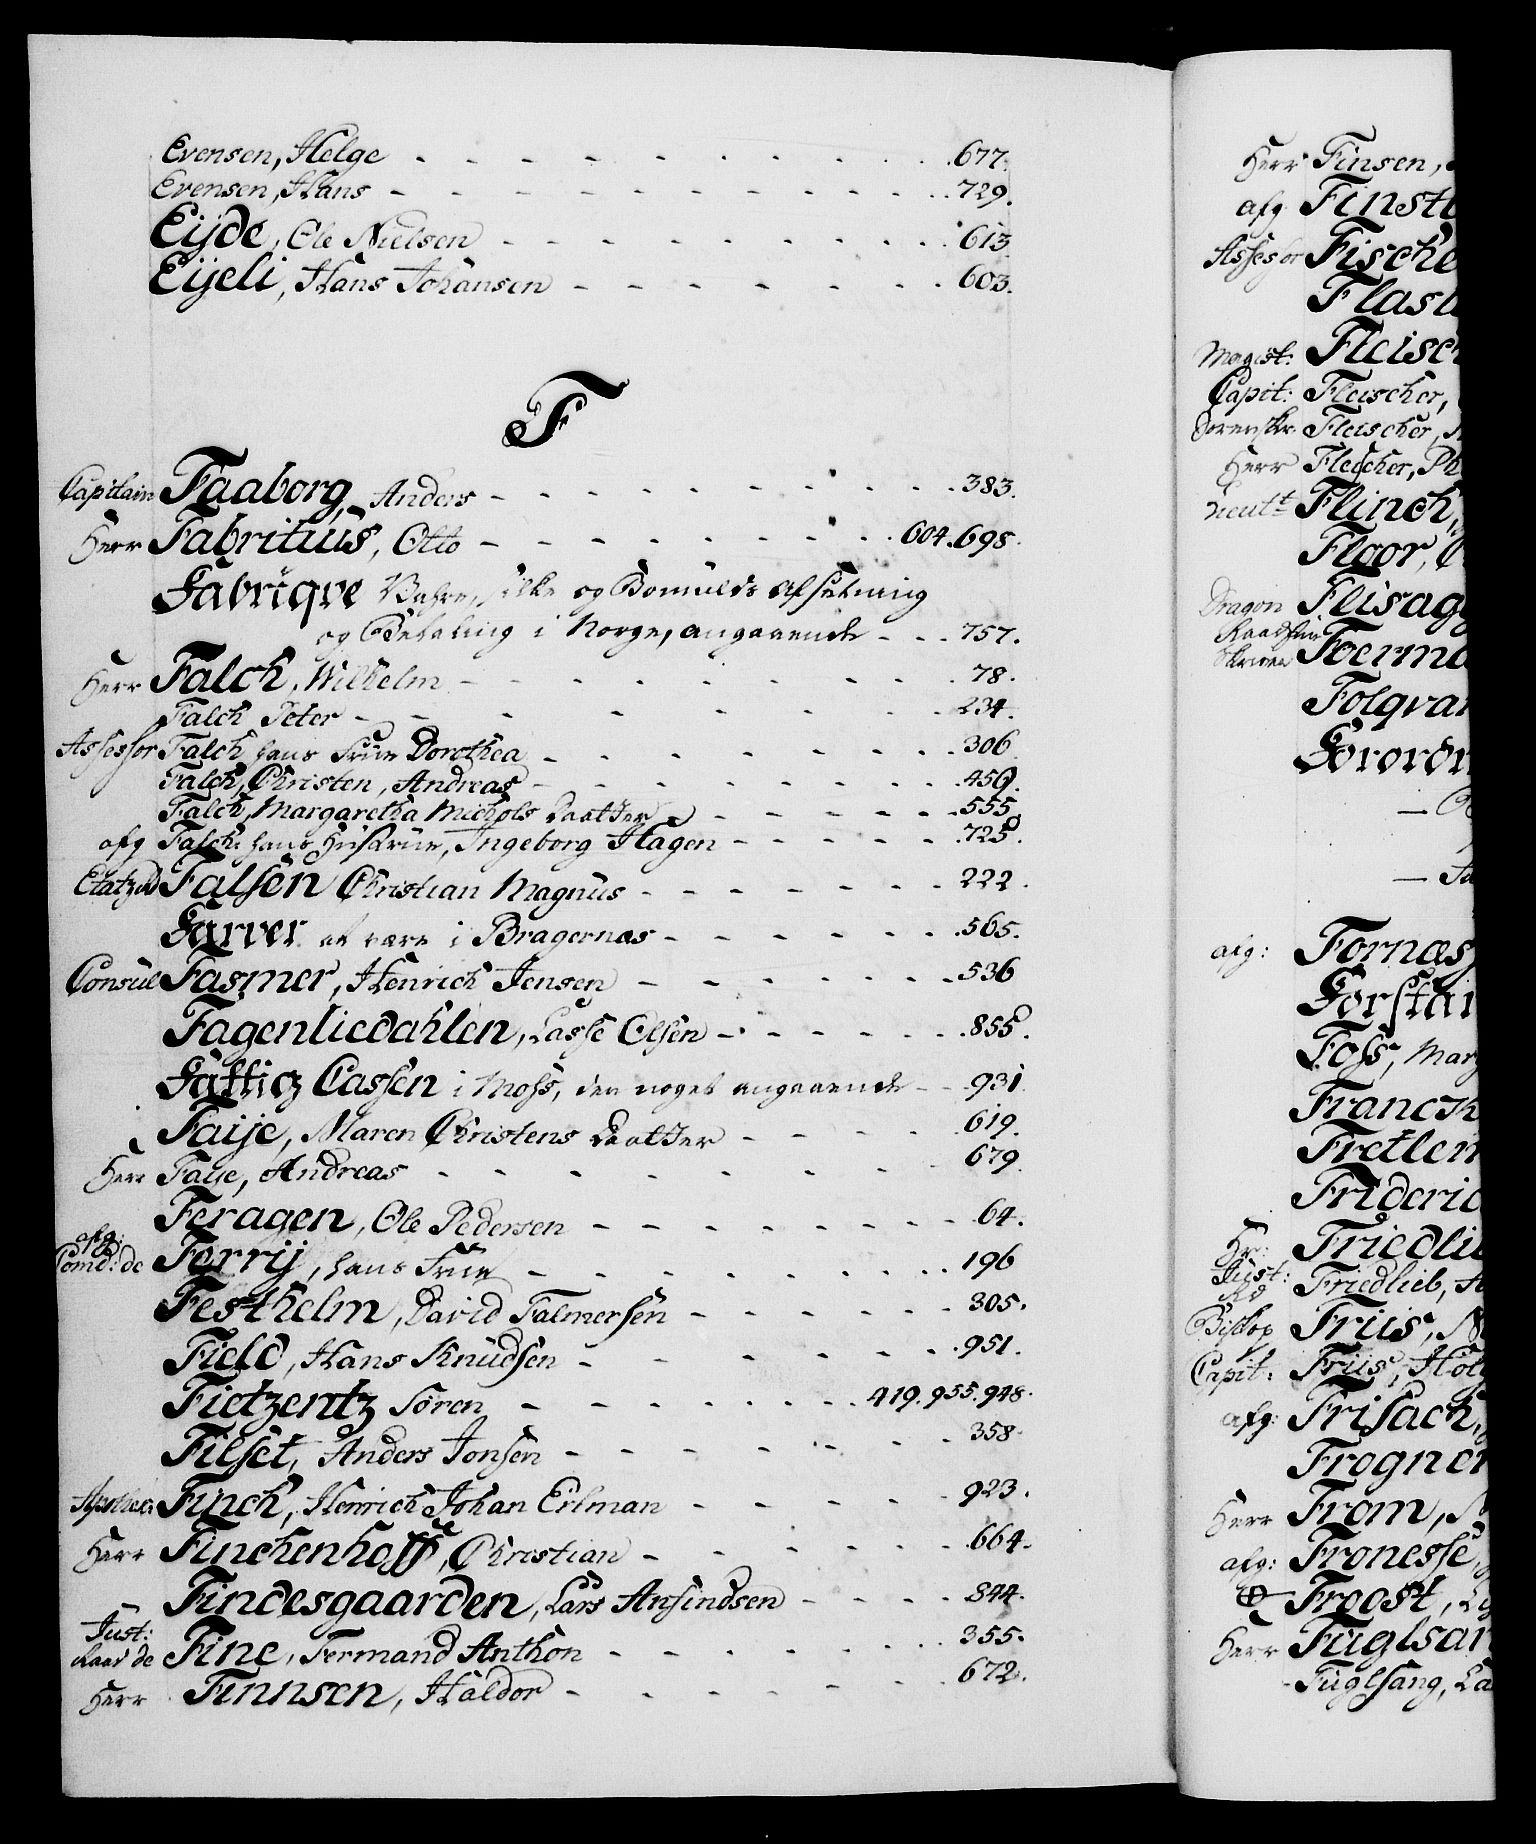 Evensen, Helge - - - - - - - - - .677.
Evensen, Hans - - - - - - - - - .729.
Eijde, Ole Nielsen - - - - - - - - .613
Eijeli, Hans Johansen - - - - - - - .603.
F
Capitain Faaborg, Anders - - - - - - - - .383.
Herr Fabritius, Otto - - - - - - - .604.698.
Fabriqve Vahre, silke og Bomulds Afsetning
og Betaling i Norge, angaaende - - .757.
Herr Falch, Wilhelm - - - - - - - .78.
Falch Peter - - - - - - - .234.
Assessor Falch hans Frue Dorothea - - - - - - .306
Falch, Christen, Andreas - - - - - - .456.
Falch, Margaretha Michols Daatter - - - - .555
afg Falch: hans Hustrue, Ingeborg Hagen - - - - .725.
Etatzrd Falsen Christian Magnus - - - - - 222.
Farver at være i Bragernæs - - - - - .565.
Consul Fasmer, Henrich Jensen - - - - - .536
Fagenliedahlen, Lasse Olsen - - - - - .855.
Fattig Cassen i Moss, den noget angaaende - - .931.
Faije, Maren Christens Daatter - - - .619.
Herr Faye, Andreas - - - - - - 679
Feragen, Ole Pedersen - - - - - - 64.
afg: Comd: de Ferrij, hans Frue - - - - - - - 196
Festhelm, David Falmersen - - - - - 305.
Field, Hans Knudsen - - - - - - .951.
Fietzentz Søren - - - - - - .419.955.948.
Filset, Anders Jonsen - - - - - - 358
Apothek: Finch, Henrich Johan Erlman - - - - 923.
Herr Finchenhoff, Christian - - - - - .664.
Findesgaarden, Lars Ansindsen - - - - 844.
Just: Raad de Fine, Fermand Anthon - - - - - 355.
Herr Finnsen, Haldor - - - - - - 672.
Herr Finsen,
afg Finst
Assessor Fische
Flast
Magist: Fleisch
Capit: Fleischer,
Sorenskr Fleischer,
Herr Fleischer, Ph
Lieutt Flinch,
Floor,
Dragon Flisag
Raadstue Skriver Foerma
Folqvar
Forordn
afg: Fornæs
Forstan
Foss, Marg
Franck
Fretlen
Frideric
Hr: Friedlie
Just: Rd Friedlieb,
Biskop Friis, N
Capit: Friis, Hol
afg: Frisach,
Frogner
Herr From,
afg: Fronesse,
Froost,
Herr Fuglsan
Fuglsang, La